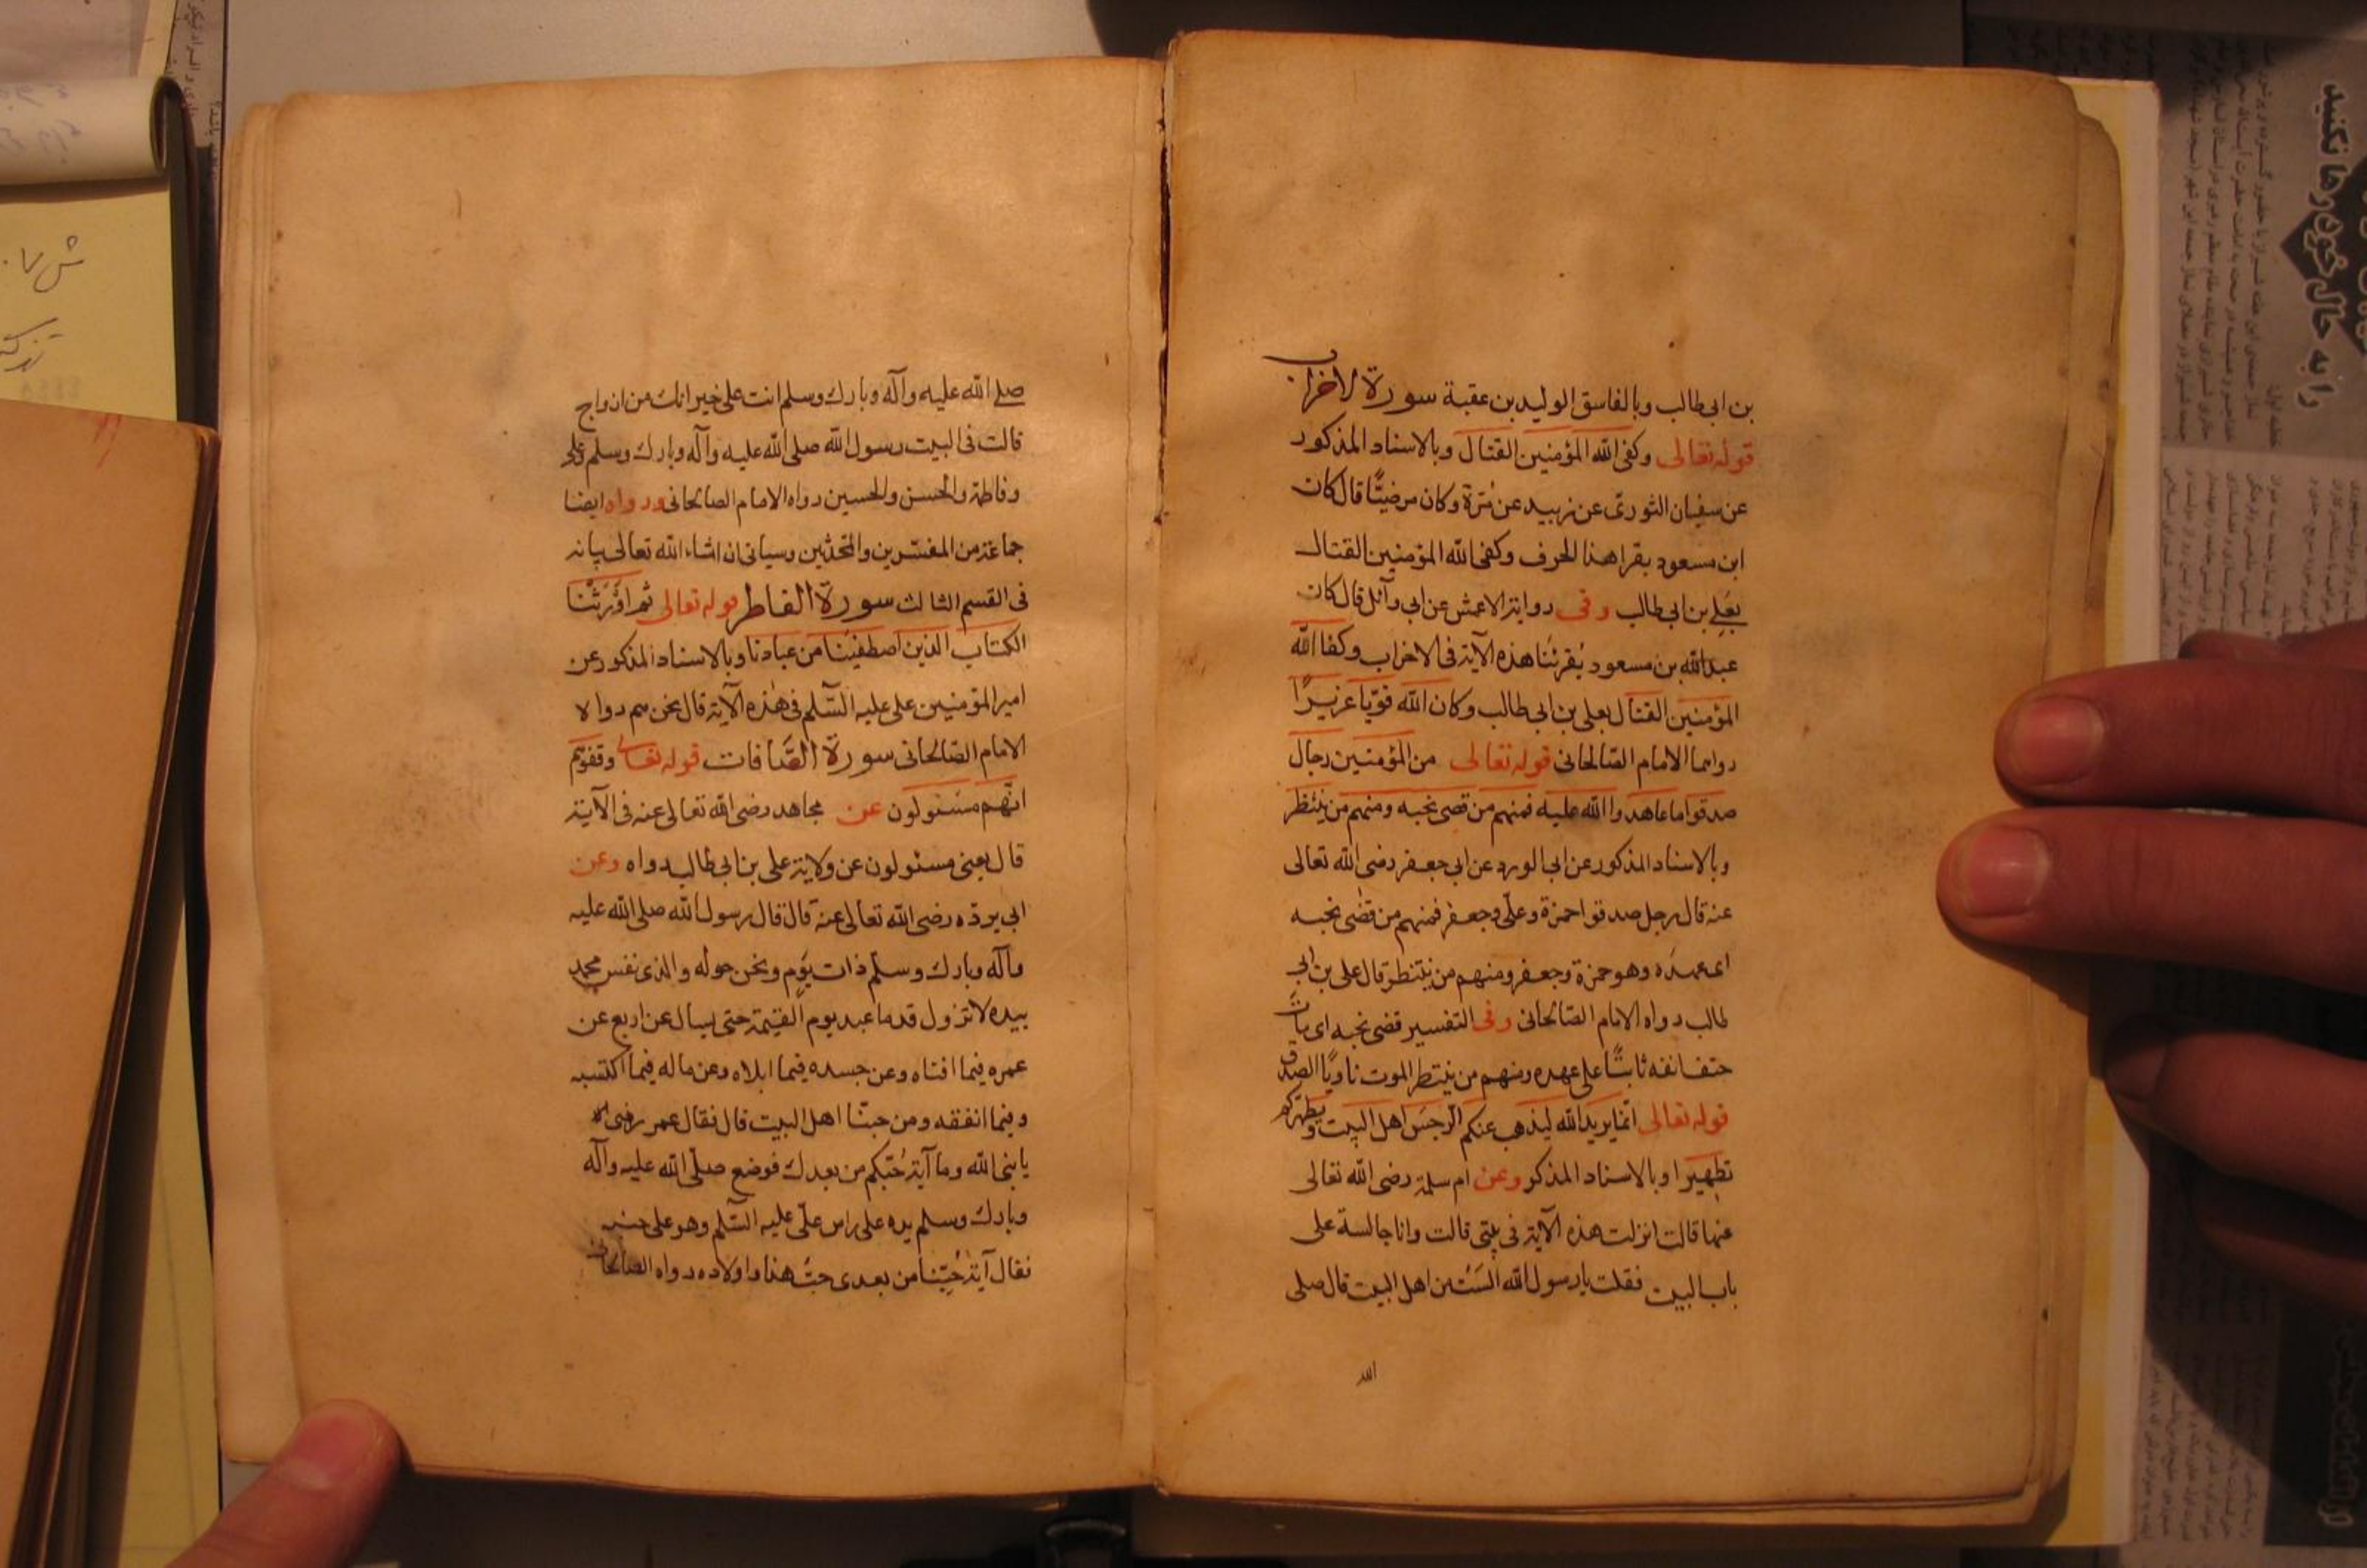 بن ابی طالب وبالفاسق الولید بن عقبة سورة الاخزاب
قوله تعالی وکفی الله المؤمنین القتال وبالاسناد المذکور
عن سفیان الثوری عن زبید عن مُرّة وکان مرضیًّا قال کان
ابن مسعود یقرا هذا الحرف وکفی الله المؤمنین القتال
بعَلِی بن ابی طالب وفی روایة الاعمش عن ابی وآئل قال کان
عبد الله بن مسعود یُقرئنا هذه الآیة فی الاخزاب وکفا الله
المؤمنین القتال بعلی بن ابی طالب وکان الله قویّا عزیزًا
رواهما الامام الصّالحانی قوله تعالی من المؤمنین رجال
صدقوا ما عاهدوا الله علیه فمنهم من قضی نحبه ومنهم من ینتظر
وبالاسناد المذکور عن ابی الورد عن ابی جعفر رضی الله تعالی
عنه قال رجل صدقوا حمزة وعلی وجعفر فمنهم من قضی نحبه
ای عهده وهو حمزة وجعفر ومنهم من ینتظر قال علی بن ابی
طالب رواه الامام الصّالحانی وفی التفسیر قضی نحبه ای مات
حتف انفه ثابتًا علی عهده ومنهم من ینتظر الموت ناویًا الصدق
قوله تعالی انّما یرید الله لیذهب عنکم الرجس اهل البیت ویطهرکم
تطهیرا وبالاسناد المذکور وعن ام سلمة رضی الله تعالی
عنها قالت انزلت هذه الآیة فی بیتی قالت وانا جالسة علی
باب البیت فقلت یا رسول الله اَلَستُ من اهل البیت قال صلی
الله
صلی الله علیه وآله وبارک وسلم انت علی خیر انک من ازواج
قالت فی البیت رسول الله صلی الله علیه وآله وبارک وسلم وعلی
وفاطمة والحسن والحسین رواه الامام الصالحانی ورواه ایضا
جماعة من المفسّرین والمحدثین وسیاتی ان اشاء الله تعالی بیانه
فی القسم الثالث سورة الفاطر قوله تعالی ثم اَوْرَثْنَا
الکتاب الذین اصطفینا من عبادنا وبالاسناد المذکور عن
امیر المؤمنین علی علیه السّلم فی هذه الآیة قال نحن هم رواه
الامام الصّالحانی سورة الصّافات قوله تعالی وقفوهم
انّهم مسئولون عن مجاهد رضی الله تعالی عنه فی الآیة
قال یعنی مسئولون عن ولایة علی بن ابی طالب رواه وعن
ابی بردة رضی الله تعالی عنه قال قال رسول الله صلی الله علیه
وآله وبارک وسلّم ذات یوم ونحن حوله والذی نفس محمد
بیده لا تزول قدما عبد یوم القیمة حتی یسال عن اربع عن
عمره فیما افناه وعن جسده فیما ابلاه وعن ماله فیما اکتسبه
وفیما انفقه ومن حبّنا اهل البیت قال فقال عمر رضی الله
یا نبی الله وما آیة حُبّکم من بعدک فوضع صلّی الله علیه وآله
وبارک وسلم یده علی راس علی علیه السّلم وهو علی جنبه
فقال آیة حُبِّنا من بعدی حبّ هذا واولاده رواه الصالحانی
را به حال خود رها نکنید